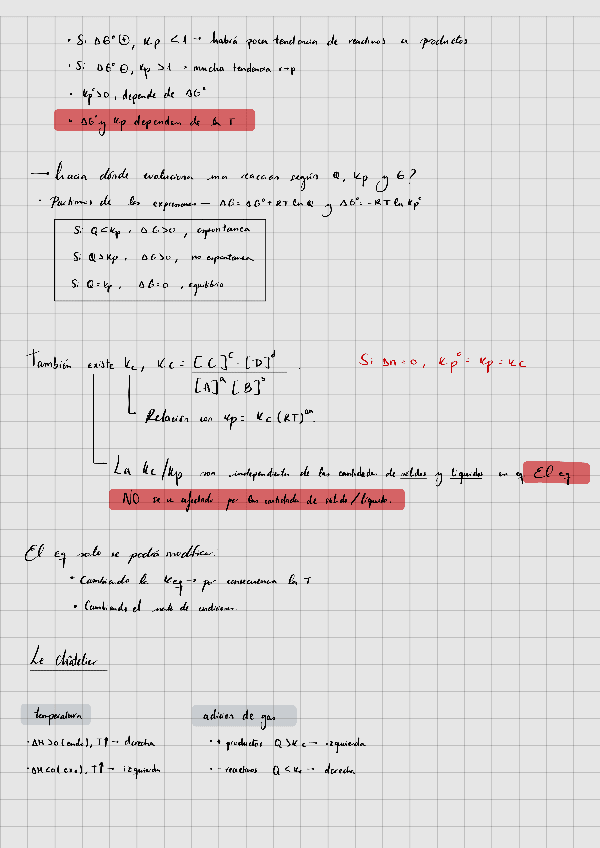 • Si ΔG° ⊕, Kp < 1 → habrá poca tendencia de reactivos a productos
• Si ΔG° ⊖, Kp > 1 → mucha tendencia r→p
• Kp° > 0, depende de ΔG°
• ΔG° y Kp dependen de la T
→ hacia dónde evoluciona una reaccion según Q, Kp y G?
• Partimos de las expresiones → ΔG = ΔG° + RT ln Q y ΔG° = -RT ln Kp°
Si Q < Kp, ΔG > 0, espontanea
Si Q > Kp, ΔG > 0, no espontanea
Si Q = Kp, ΔG = 0, equilibrio
También existe Kc, Kc = [C]^c · [D]^d / [A]^a [B]^b
Si Δn = 0, Kp° = Kp = Kc
Relación con Kp = Kc (RT)^Δn.
La Kc/Kp son independientes de las cantidades de sólidos y líquidos en eq El eq
NO se ve afectado por las cantidades de sólido/líquido.
El eq solo se podrá modificar:
• Cambiando la Keq → por consecuencia la T
• Cambiando el de condiciones.
Le Châtelier
temperatura
adicion de gas
• ΔH > 0 (endo), T↑ → derecha
• + productos Q > Kc → izquierda
• ΔH < 0 (exo), T↑ → izquierda
• - reactivos Q < Kc → derecha